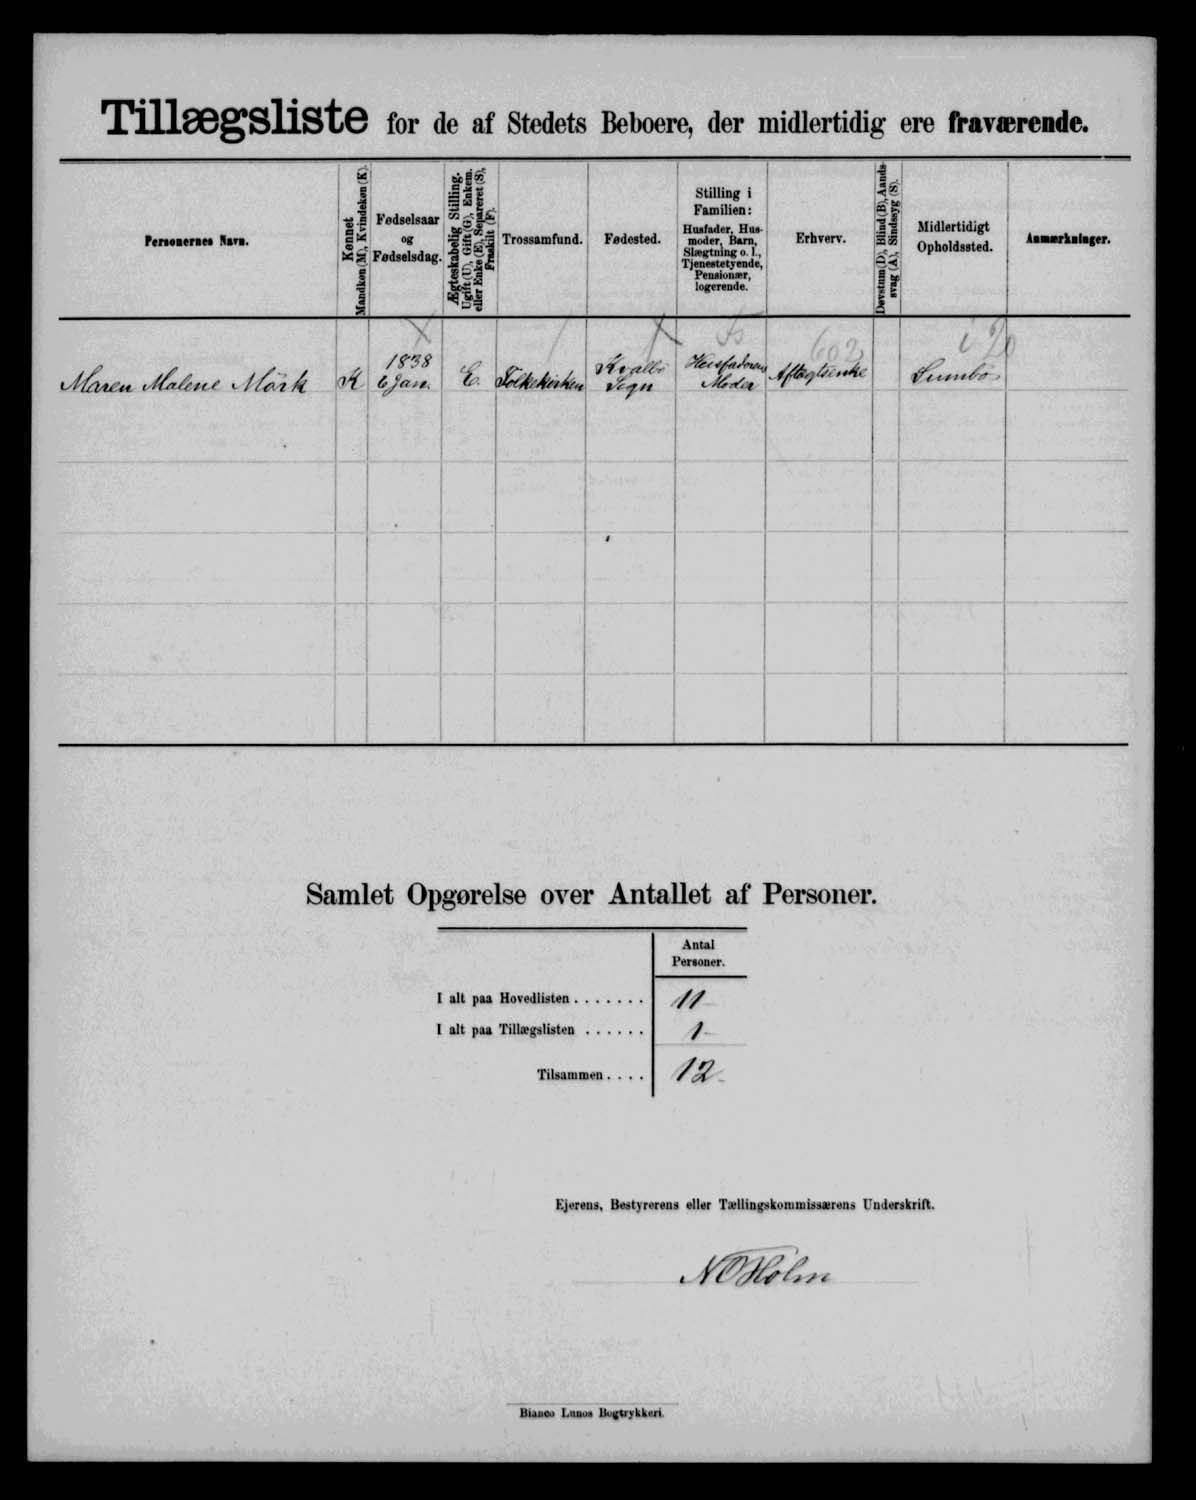 Tillægsliste for de af Stedets Beboere, der midlertidig ere fraværende.
Personernes Navn.
Kønnet
Mandkøn (M), Kvindekøn (K).
Fødselsaar
og
Fødselsdag.
Ægteskabelig Stilling.
Ugift (U), Gift (G), Enkem.
eller Enke (E), Separeret (S),
Fraskilt (F).
Trossamfund.
Fødested.
Stilling i
Familien:
Husfader, Hus-
moder, Barn,
Slægtning o. l.,
Tjenestetyende,
Pensionær,
logerende.
Erhverv.
Døvstum (D), Blind (B), Aands-
svag (A), Sindssyg (S).
Midlertidigt
Opholdssted.
Anmærkninger.
602
Maren Malene Mörk
K
1838
6 Jan.
E.
Folkekirken
Kvalbö
Sogn
Husfaderens
Moder
Aftægtsenke
Sumbö
Samlet Opgørelse over Antallet af Personer.
Antal
Personer.
I alt paa Hovedlisten . . . . . . . 11
I alt paa Tillægslisten . . . . . . 1
Tilsammen . . . . 12
Ejerens, Bestyrerens eller Tællingskommissærens Underskrift.
N O Holm
Bianco Lunos Bogtrykkeri.